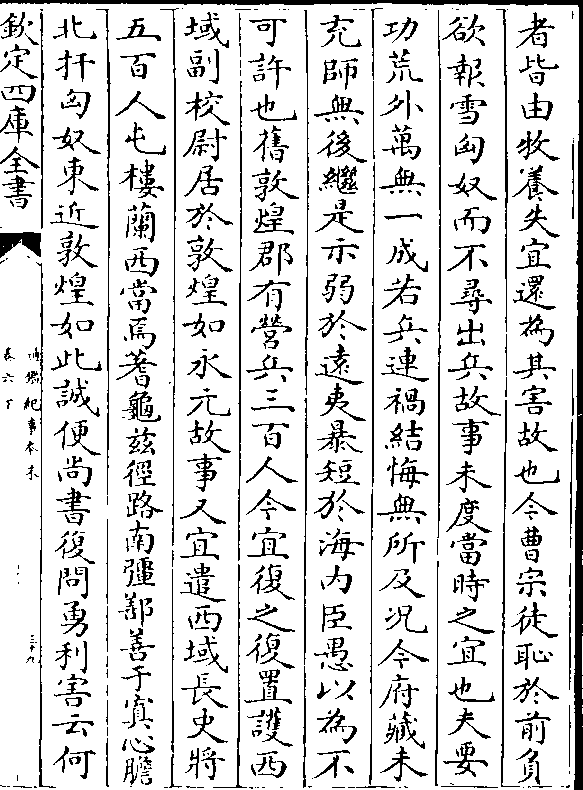 者皆由牧養失宜還為其害故也今曹宗徒恥於前負
欲報雪匈奴而不尋出兵故事未度當時之宜也夫要
功荒外萬無一成若兵連禍結悔無所及况今府藏未
充師無後繼是示弱於遠夷暴短於海内臣愚以為不
可許也舊敦煌郡有營兵三百人今宜復之復置護西
域副校尉居於敦煌如永元故事又宜遣西域長史將
五百人屯樓蘭西當焉耆龜兹徑路南彊鄯善于窴心膽
北扞匈奴東近敦煌如此誠便尚書復問勇利害云何
欽定四庫全書
通鑑紀事本末
卷六下
三十九